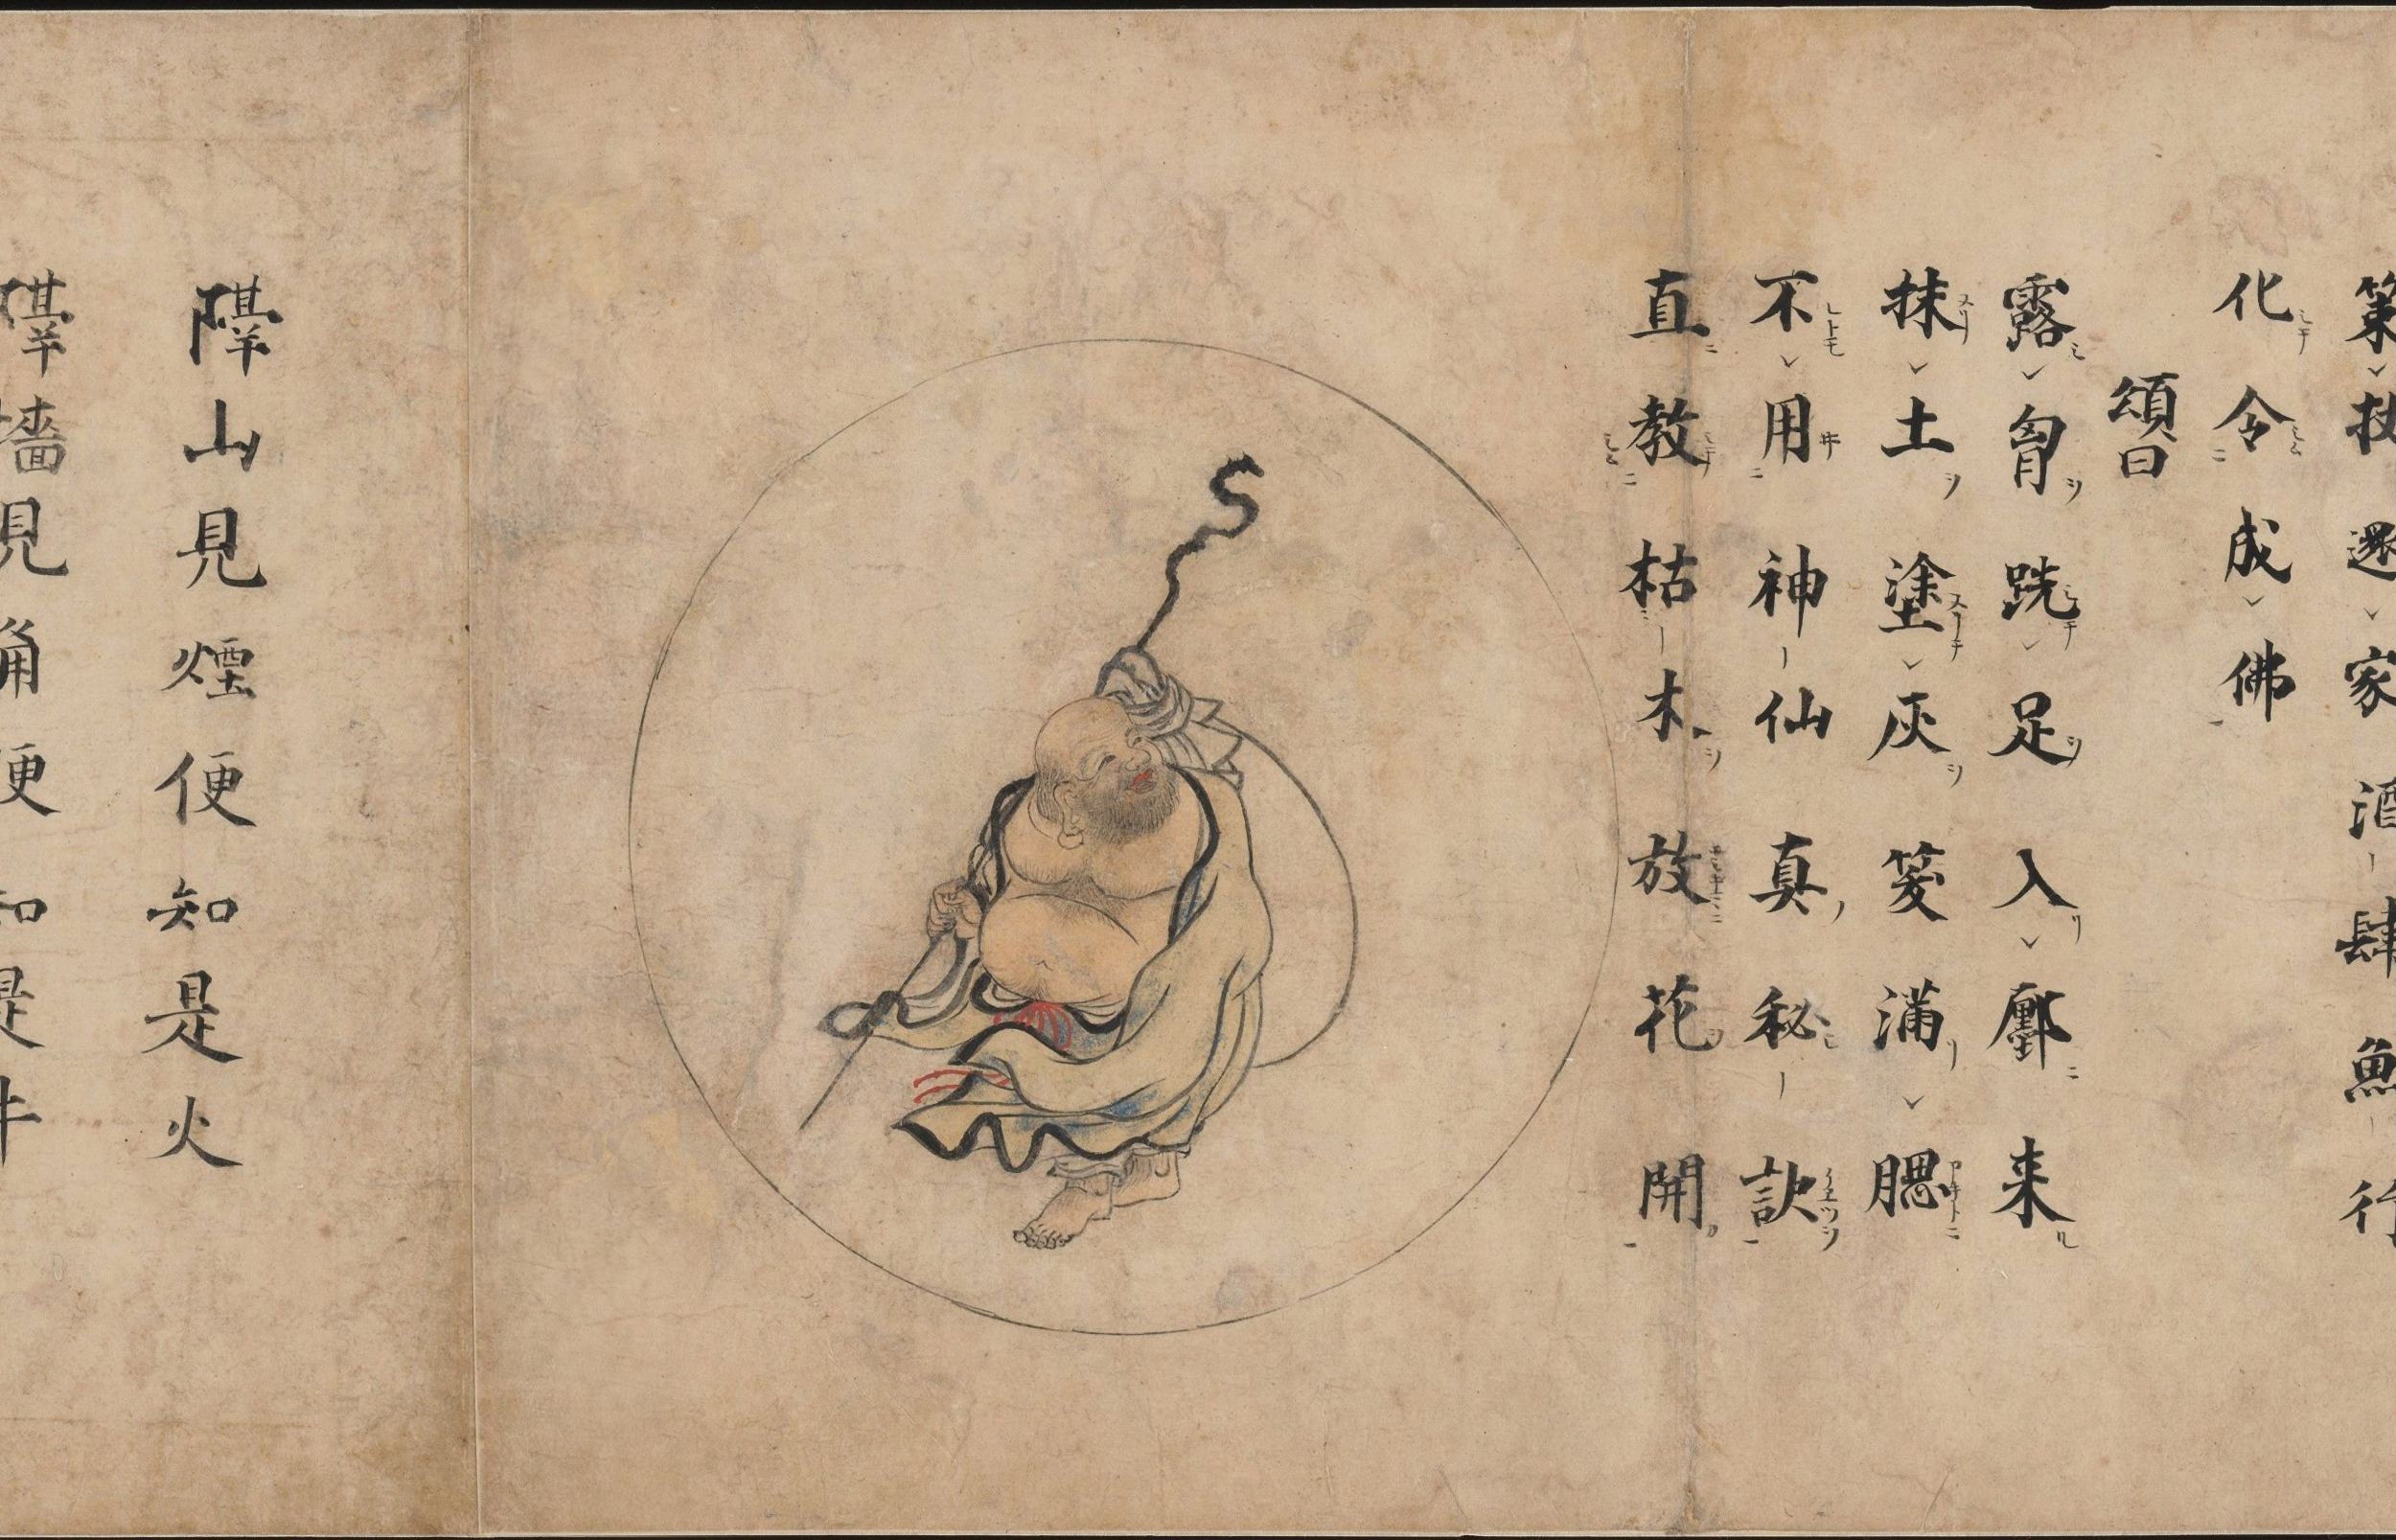 策杖還家酒肆魚行
化令成佛
頌曰
露胷跣足入鄽来
抹土塗灰笑滿腮
不用神仙真秘訣
直教枯木放花開
隔山見煙便知是火
墻見角便知是牛